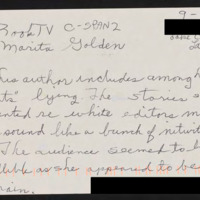 BookTV C-SPAN2 9-
Marita Golden
his author includes among h
ts" lying. The stories s
ented re white editors m
sound like a bunch of
The audience seemed to b
lible as she appeared to be
ain.